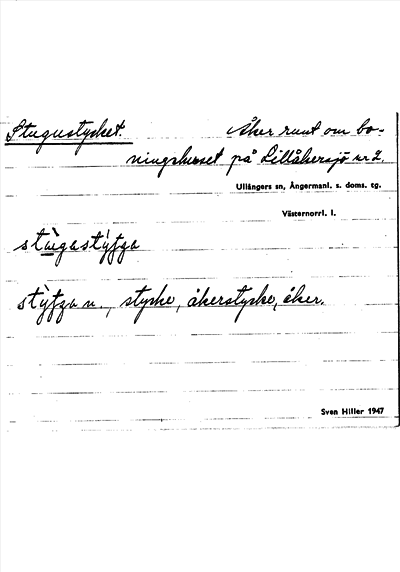 Stugustycket. Åker runt om bo-
ningshuset på Lillåkersjö nr 2.
Ullångers sn, Ångermanl. s. doms. tg.
Västernorrl. l.
n., stycke, åkerstycke, åker.
Sven Hiller 1947